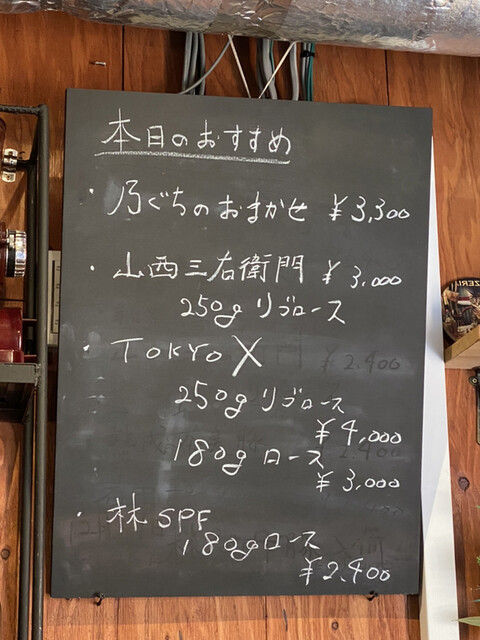 本日のおすすめ
・乃ぐちのおまかせ ¥3,300
・山西三右衛門 ¥3,000
250g リブロース
・TOKYO X
250g リブロース
¥4,000
180g ロース
¥3,000
・林SPF
180gロース
¥2,400